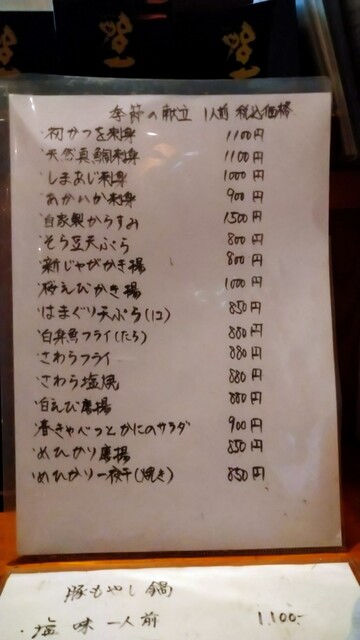 季節の献立 1人前 税込価格
・初かつを刺身 1100円
・天然真鯛刺身 1100円
・しまあじ刺身 1000円
・あかいか刺身 900円
・自家製からすみ 1500円
・そら豆天ぷら 800円
・新じゃがかき揚 800円
・桜えびかき揚 1000円
・はまぐり天ぷら(1コ) 850円
・白身魚フライ(たら) 880円
・さわらフライ 880円
・さわら塩焼 880円
・白えび唐揚 880円
・春きゃべつとかにのサラダ 900円
・めひかり唐揚 850円
・めひかり一夜干(焼き) 850円
豚もやし鍋
・塩味 一人前 1,100.-